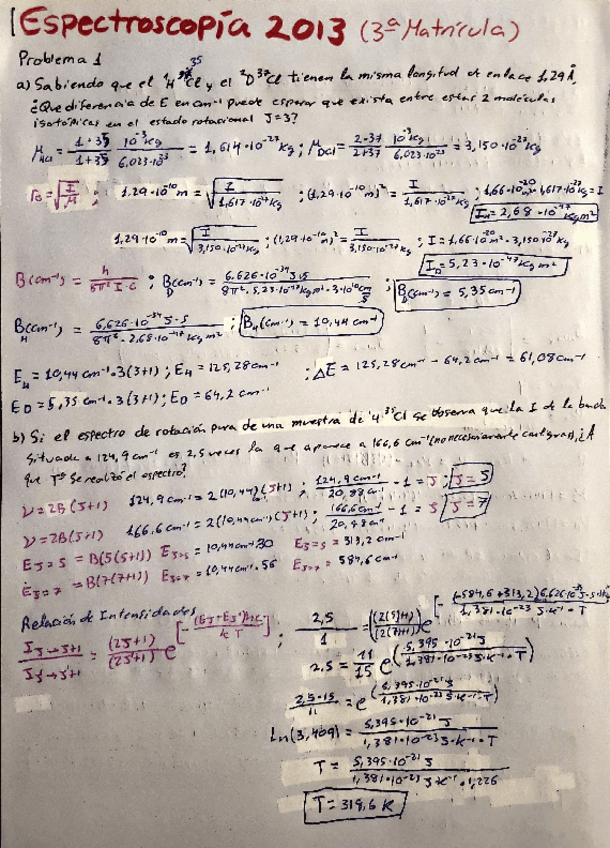 Espectroscopía 2013 (3ª Matrícula)
Problema 1
a) Sabiendo que el ¹H ³⁵Cl y el ²D³⁷Cl tienen la misma longitud de enlace 1,29 Å,
¿Que diferencia de E en cm⁻¹ puede esperar que exista entre estas 2 moléculas
isotópicas en el estado rotacional J=3?
μHCl = 1·35/1+35 10⁻³kg/6,023·10²³ = 1,614·10⁻²⁷ kg; μDCl = 2·37/2+37 10⁻³kg/6,023·10²³ = 3,150·10⁻²⁷ kg
r₀ = √(I/μ) ; 1,29·10⁻¹⁰ m = √(I/1,617·10⁻²⁷ kg) ; (1,29·10⁻¹⁰ m)² = I/1,617·10⁻²⁷ kg ; 1,66·10⁻²⁰ m²·1,617·10⁻²⁷ kg = I
I_H = 2,68·10⁻⁴⁷ kg m²
1,29·10⁻¹⁰ m = √(I/3,150·10⁻²⁷ kg) ; (1,29·10⁻¹⁰ m)² = I/3,150·10⁻²⁷ kg ; I = 1,66·10⁻²⁰ m²·3,150·10⁻²⁷ kg
I_D = 5,23·10⁻⁴⁷ kg m²
B(cm⁻¹) = h/8π² I·C ; B_D(cm⁻¹) = 6,626·10⁻³⁴ J·s/8π²·5,23·10⁻⁴⁷ kg m²·3·10¹⁰ cm/s ; B_D(cm⁻¹) = 5,35 cm⁻¹
B_H(cm⁻¹) = 6,626·10⁻³⁴ J·s/8π²·2,68·10⁻⁴⁷ kg m² ; B_H(cm⁻¹) = 10,44 cm⁻¹
E_H = 10,44 cm⁻¹·3(3+1) ; E_H = 125,28 cm⁻¹ ; ΔE = 125,28 cm⁻¹ - 64,2 cm⁻¹ = 61,08 cm⁻¹
E_D = 5,35 cm⁻¹·3(3+1) ; E_D = 64,2 cm⁻¹
b) Si el espectro de rotación pura de una muestra de ¹H ³⁵Cl se observa que la I de la banda
situada a 124,9 cm⁻¹ es 2,5 veces la que aparece a 166,6 cm⁻¹ (no necesariamente contiguas), ¿A
que Tª se realizó el espectro?
ν = 2B(J+1) 124,9 cm⁻¹ = 2(10,44)(J+1) ; 124,9 cm⁻¹/20,88 cm⁻¹ - 1 = J ; J = 5
ν = 2B(J+1) 166,6 cm⁻¹ = 2(10,44 cm⁻¹)(J+1) ; 166,6 cm⁻¹/20,48 cm⁻¹ - 1 = J J = 7
E_J=5 = B(5(5+1)) E_J=5 = 10,44 cm⁻¹·30 E_J=5 = 313,2 cm⁻¹
E_J=7 = B(7(7+1)) E_J=7 = 10,44 cm⁻¹·56 E_J=7 = 584,6 cm⁻¹
Relación de Intensidades
2,5/1 = (2(5)+1)/(2(7)+1) e
2,5 = 11/15 e^(5,395·10⁻²¹ J/1,381·10⁻²³ J·K⁻¹·T)
2,5·15/11 = e^(5,395·10⁻²¹ J/1,381·10⁻²³ J·K⁻¹·T)
Ln(3,409) = 5,395·10⁻²¹ J/1,381·10⁻²³ J·K⁻¹·T
T = 5,395·10⁻²¹ J/1,381·10⁻²³ J·K⁻¹·1,226
T = 318,6 K